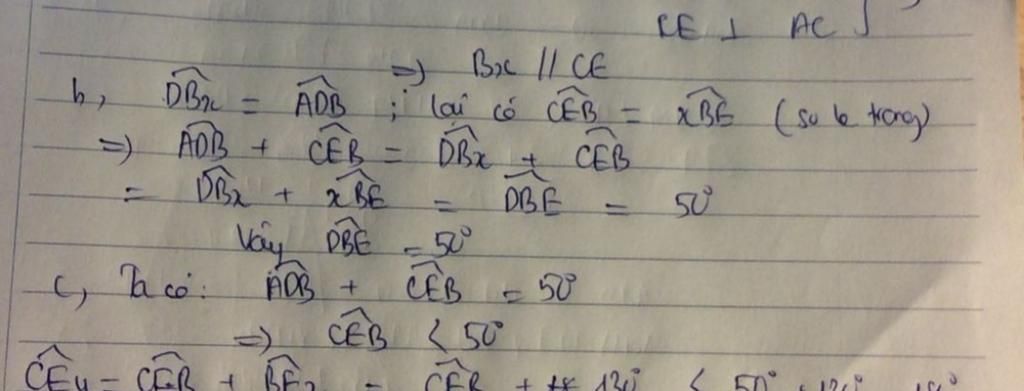 CE ⊥ AC
=> Bx // CE
b, DBx = ADB ; lại có CEB = xBE (so le trong)
=> ADB + CEB = DBx + CEB
= DBx + xBE = DBE = 50°
Vậy DBE = 50°
c, Ta có: ADB + CEB = 50°
=> CEB < 50°
CEy = CEB + = CEB + 130° < 50° +